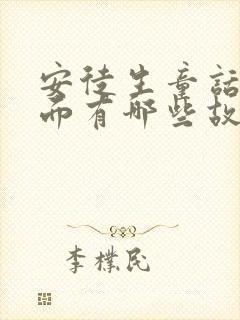 安徒生童話
而有那些故
李樸民